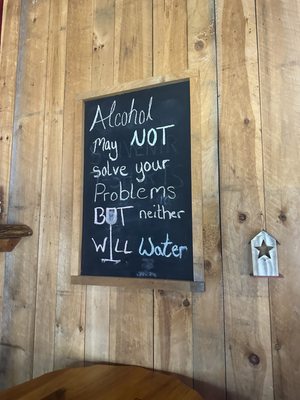 Alcohol
May NOT
solve your
Problems
BUT neither
WILL Water